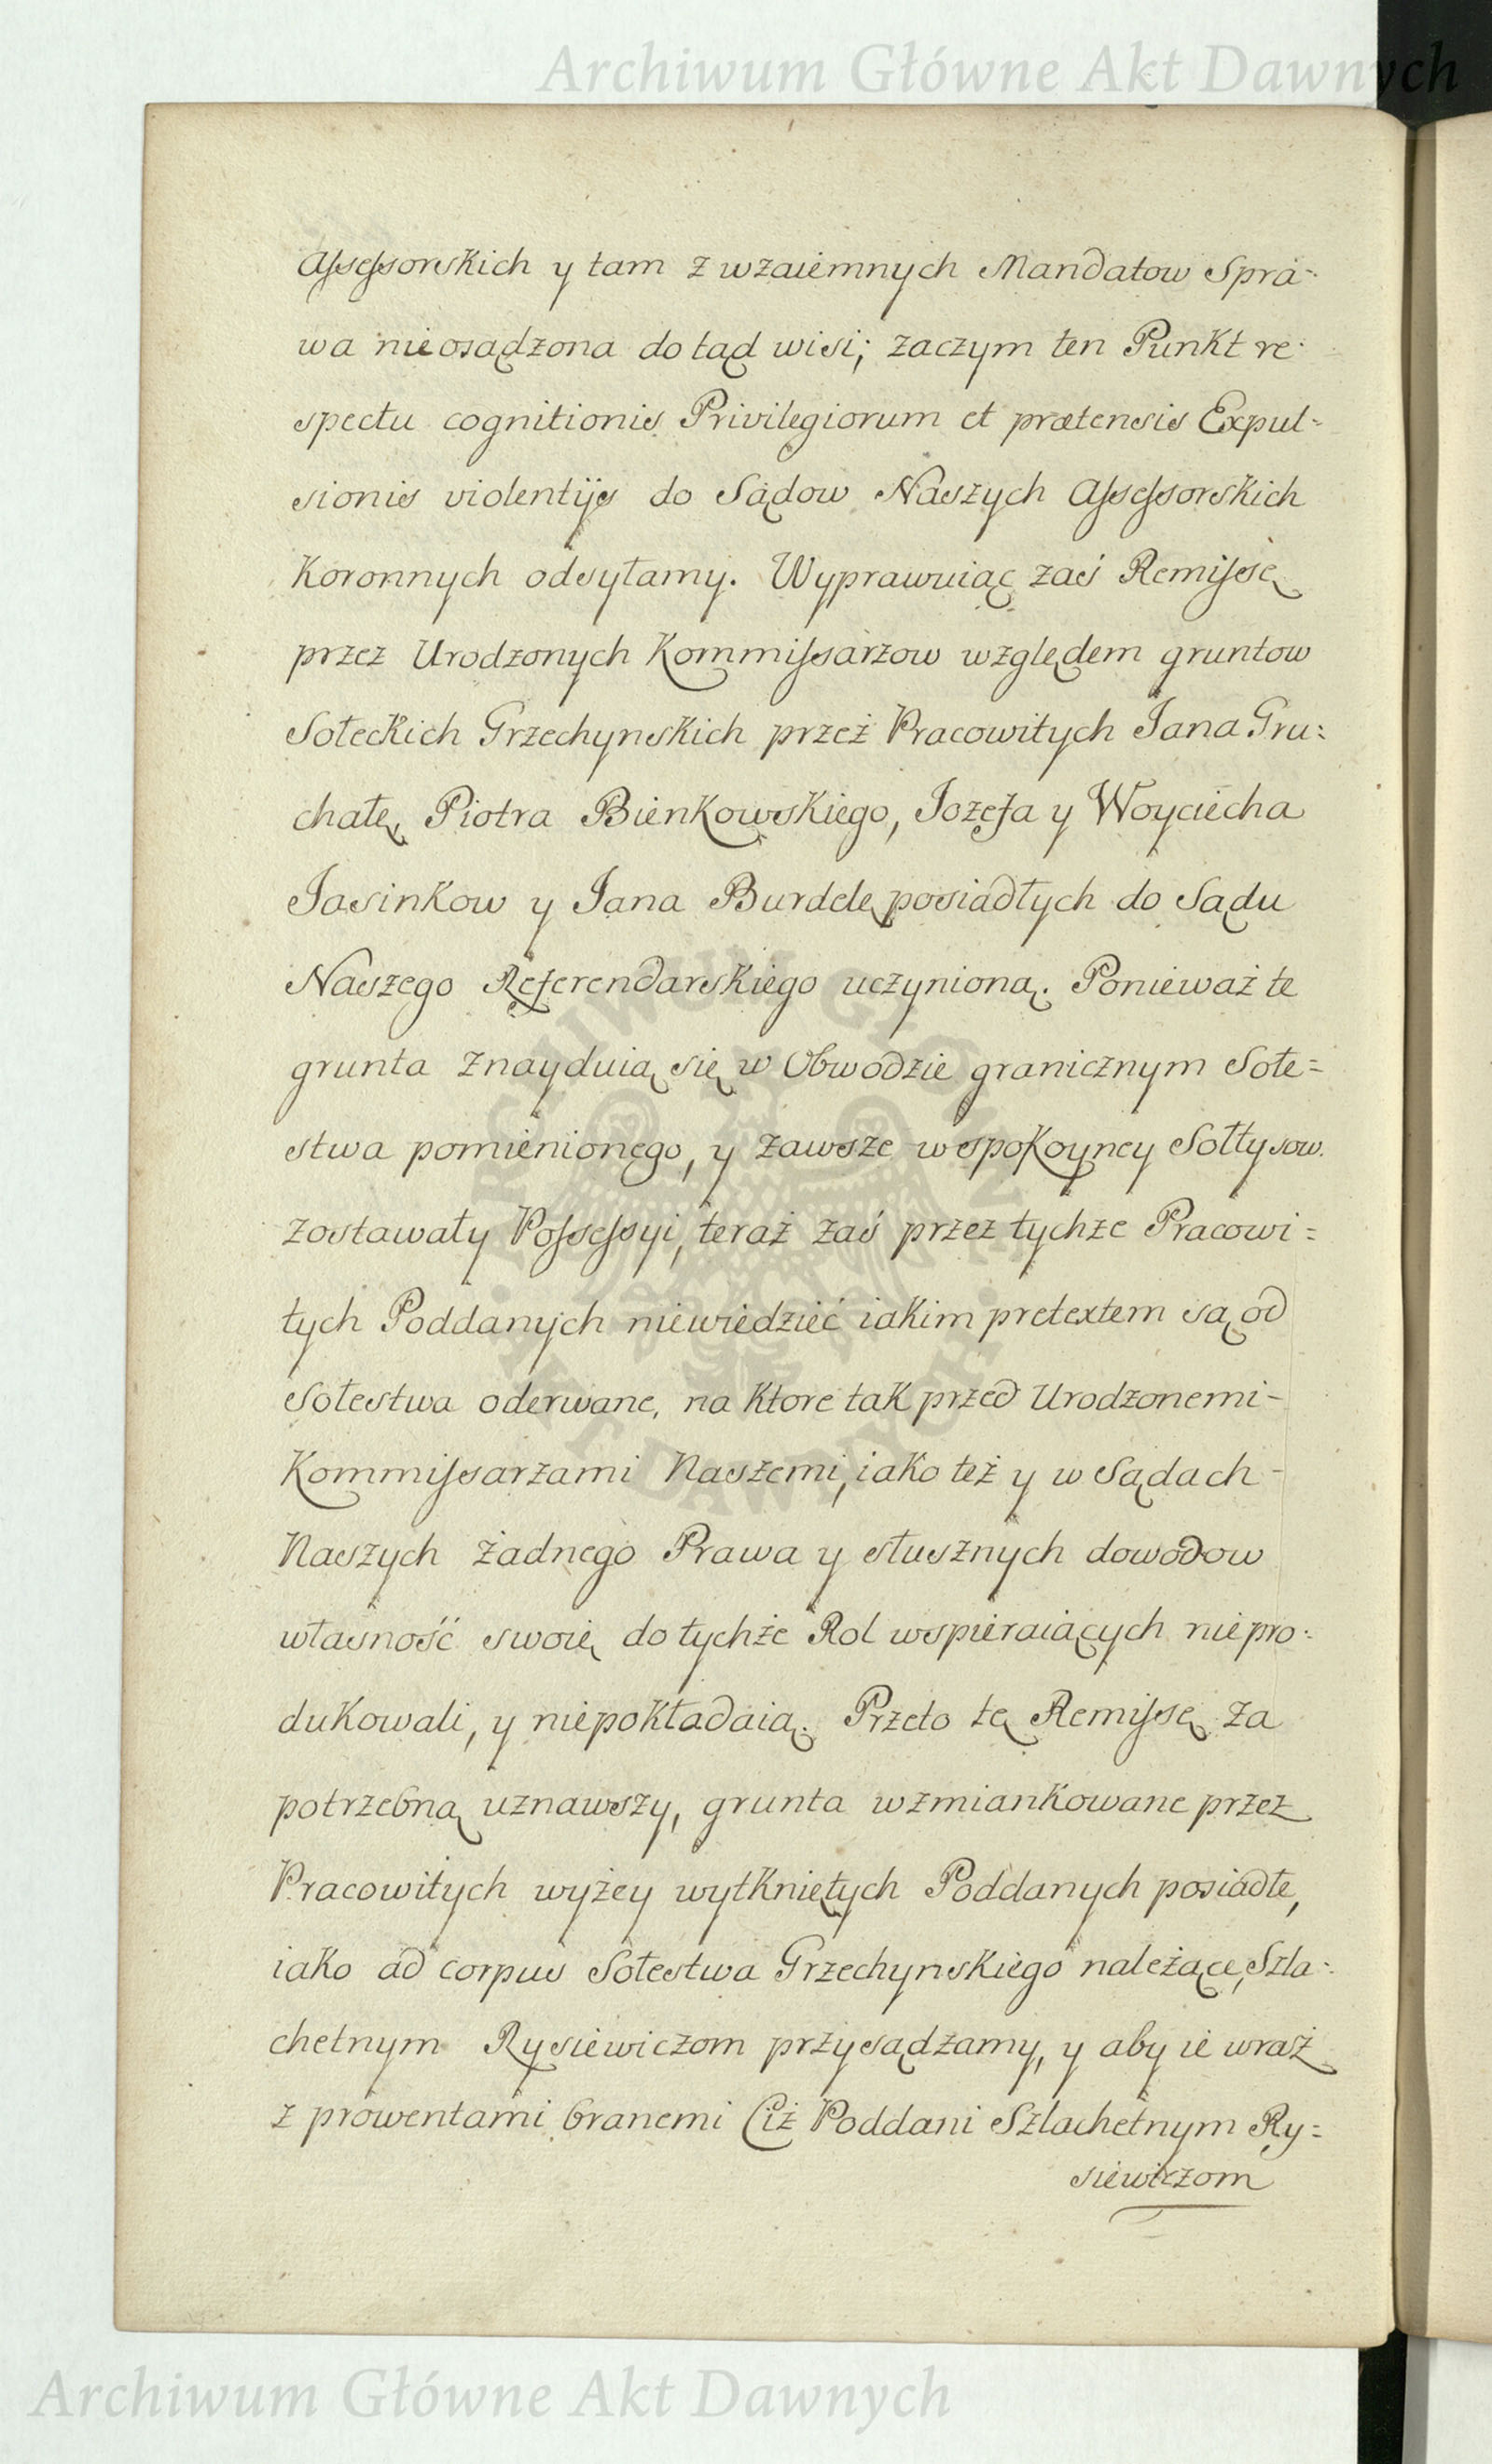 Archiwum Główne Akt Dawnych
Assessorskich y tam z wzaiemnych Mandatow Spra=
wa nieosądzona dotąd wisi; zaczym ten Punkt re=
spectu cognitionis Privilegiorum et prætensis Expul=
sionis violentijs do Sądow Naszych Assessorskich
Koronnych odsyłamy. Wyprawuiąc zaś Remissę
przez Urodzonych Kommissarzow względem gruntow
Sołeckich Grzechynskich przeż Pracowitych Jana Gru=
chałę, Piotra Bienkowskiego, Jozefa y Woyciecha
Jasinkow y Jana Burdelę posiadłych do Sądu
Naszego Referendarskiego uczynioną. Ponieważ te
grunta znayduią się w Obwodzie granicznym Sołe=
stwa pomienionego, y zawsze w spokoyney Sołtysow
zostawały Possessyi, teraż zaś przez tychże Pracowi=
tych Poddanych niewiedzieć iakim pretextem są od
Sołestwa oderwane, na ktore tak przed Urodzonemi-
Kommissarzami Naszemi, iako też y w Sądach-
Naszych żadnego Prawa y słusznych dowodow
własność swoię do tychże Rol wspieraiących niepro=
dukowali, y niepokładaią. Przeto tę Remissę za
potrzebną uznawszy, grunta wzmiankowane przez
Pracowitych wyżey wytkniętych Poddanych posiadłe,
iako ad corpus Sołestwa Grzechynskiego należące, Szla=
chetnym Rysiewiczom przysądzamy, y aby ie wraż
z prowentami branemi Ciż Poddani Szlachetnym Ry=
siewiczom
ARCHIWUM GŁÓWNE AKT DAWNYCH
Archiwum Główne Akt Dawnych